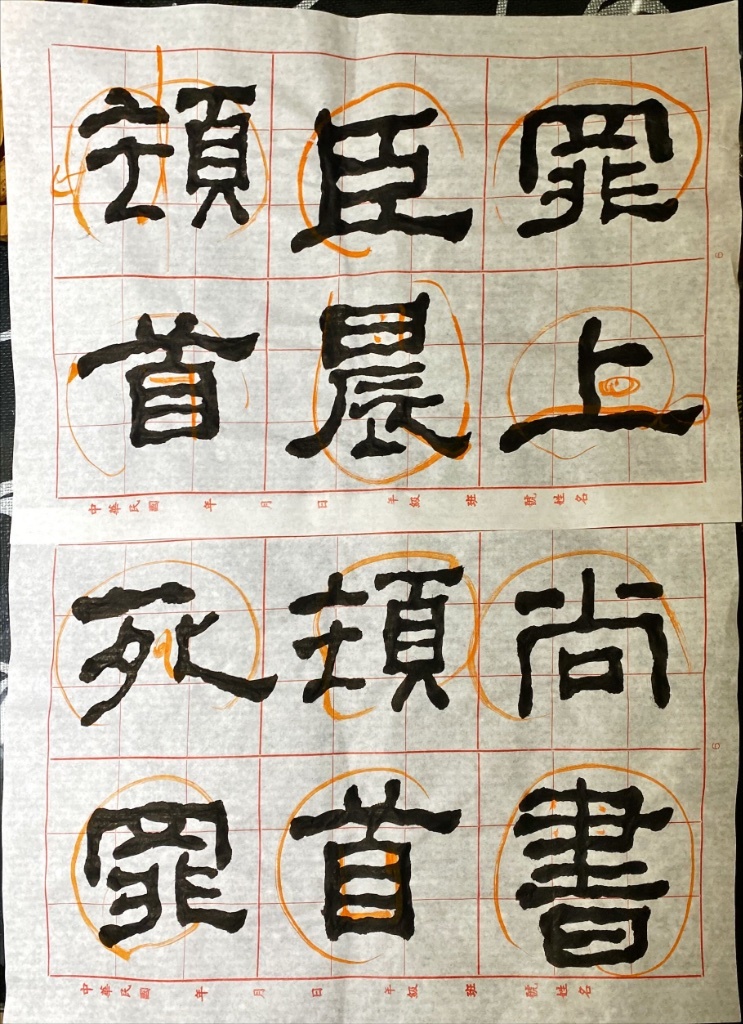 罪上
臣晨
頓首
中華民國 年 月 日 年級 班 號 姓名
6
尚書
頓首
死罪
中華民國 年 月 日 年級 班 號 姓名
6